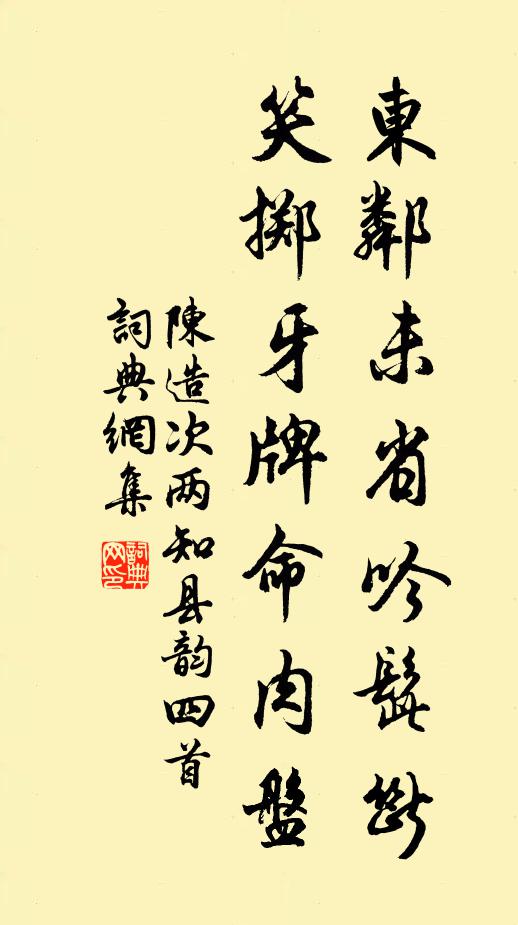 東鄰未省吟髭斷
笑擲牙牌命肉盤
陳造次两知县韵四首
詞典網集
詞典网印